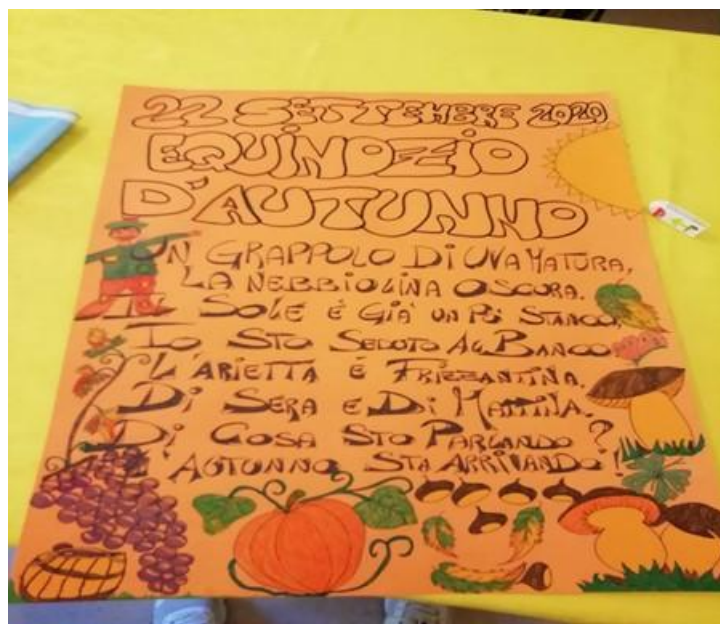 22 SETTEMBRE 2020
EQUINOZIO
D'AUTUNNO
UN GRAPPOLO DI UVA MATURA,
LA NEBBIOLINA OSCURA.
IL SOLE È GIÀ UN PÒ STANCO,
IO STO SEDUTO AL BANCO.
L'ARIETTA È FRIZZANTINA.
DI SERA E DI MATTINA.
DI COSA STO PARLANDO?
L'AUTUNNO STA ARRIVANDO!